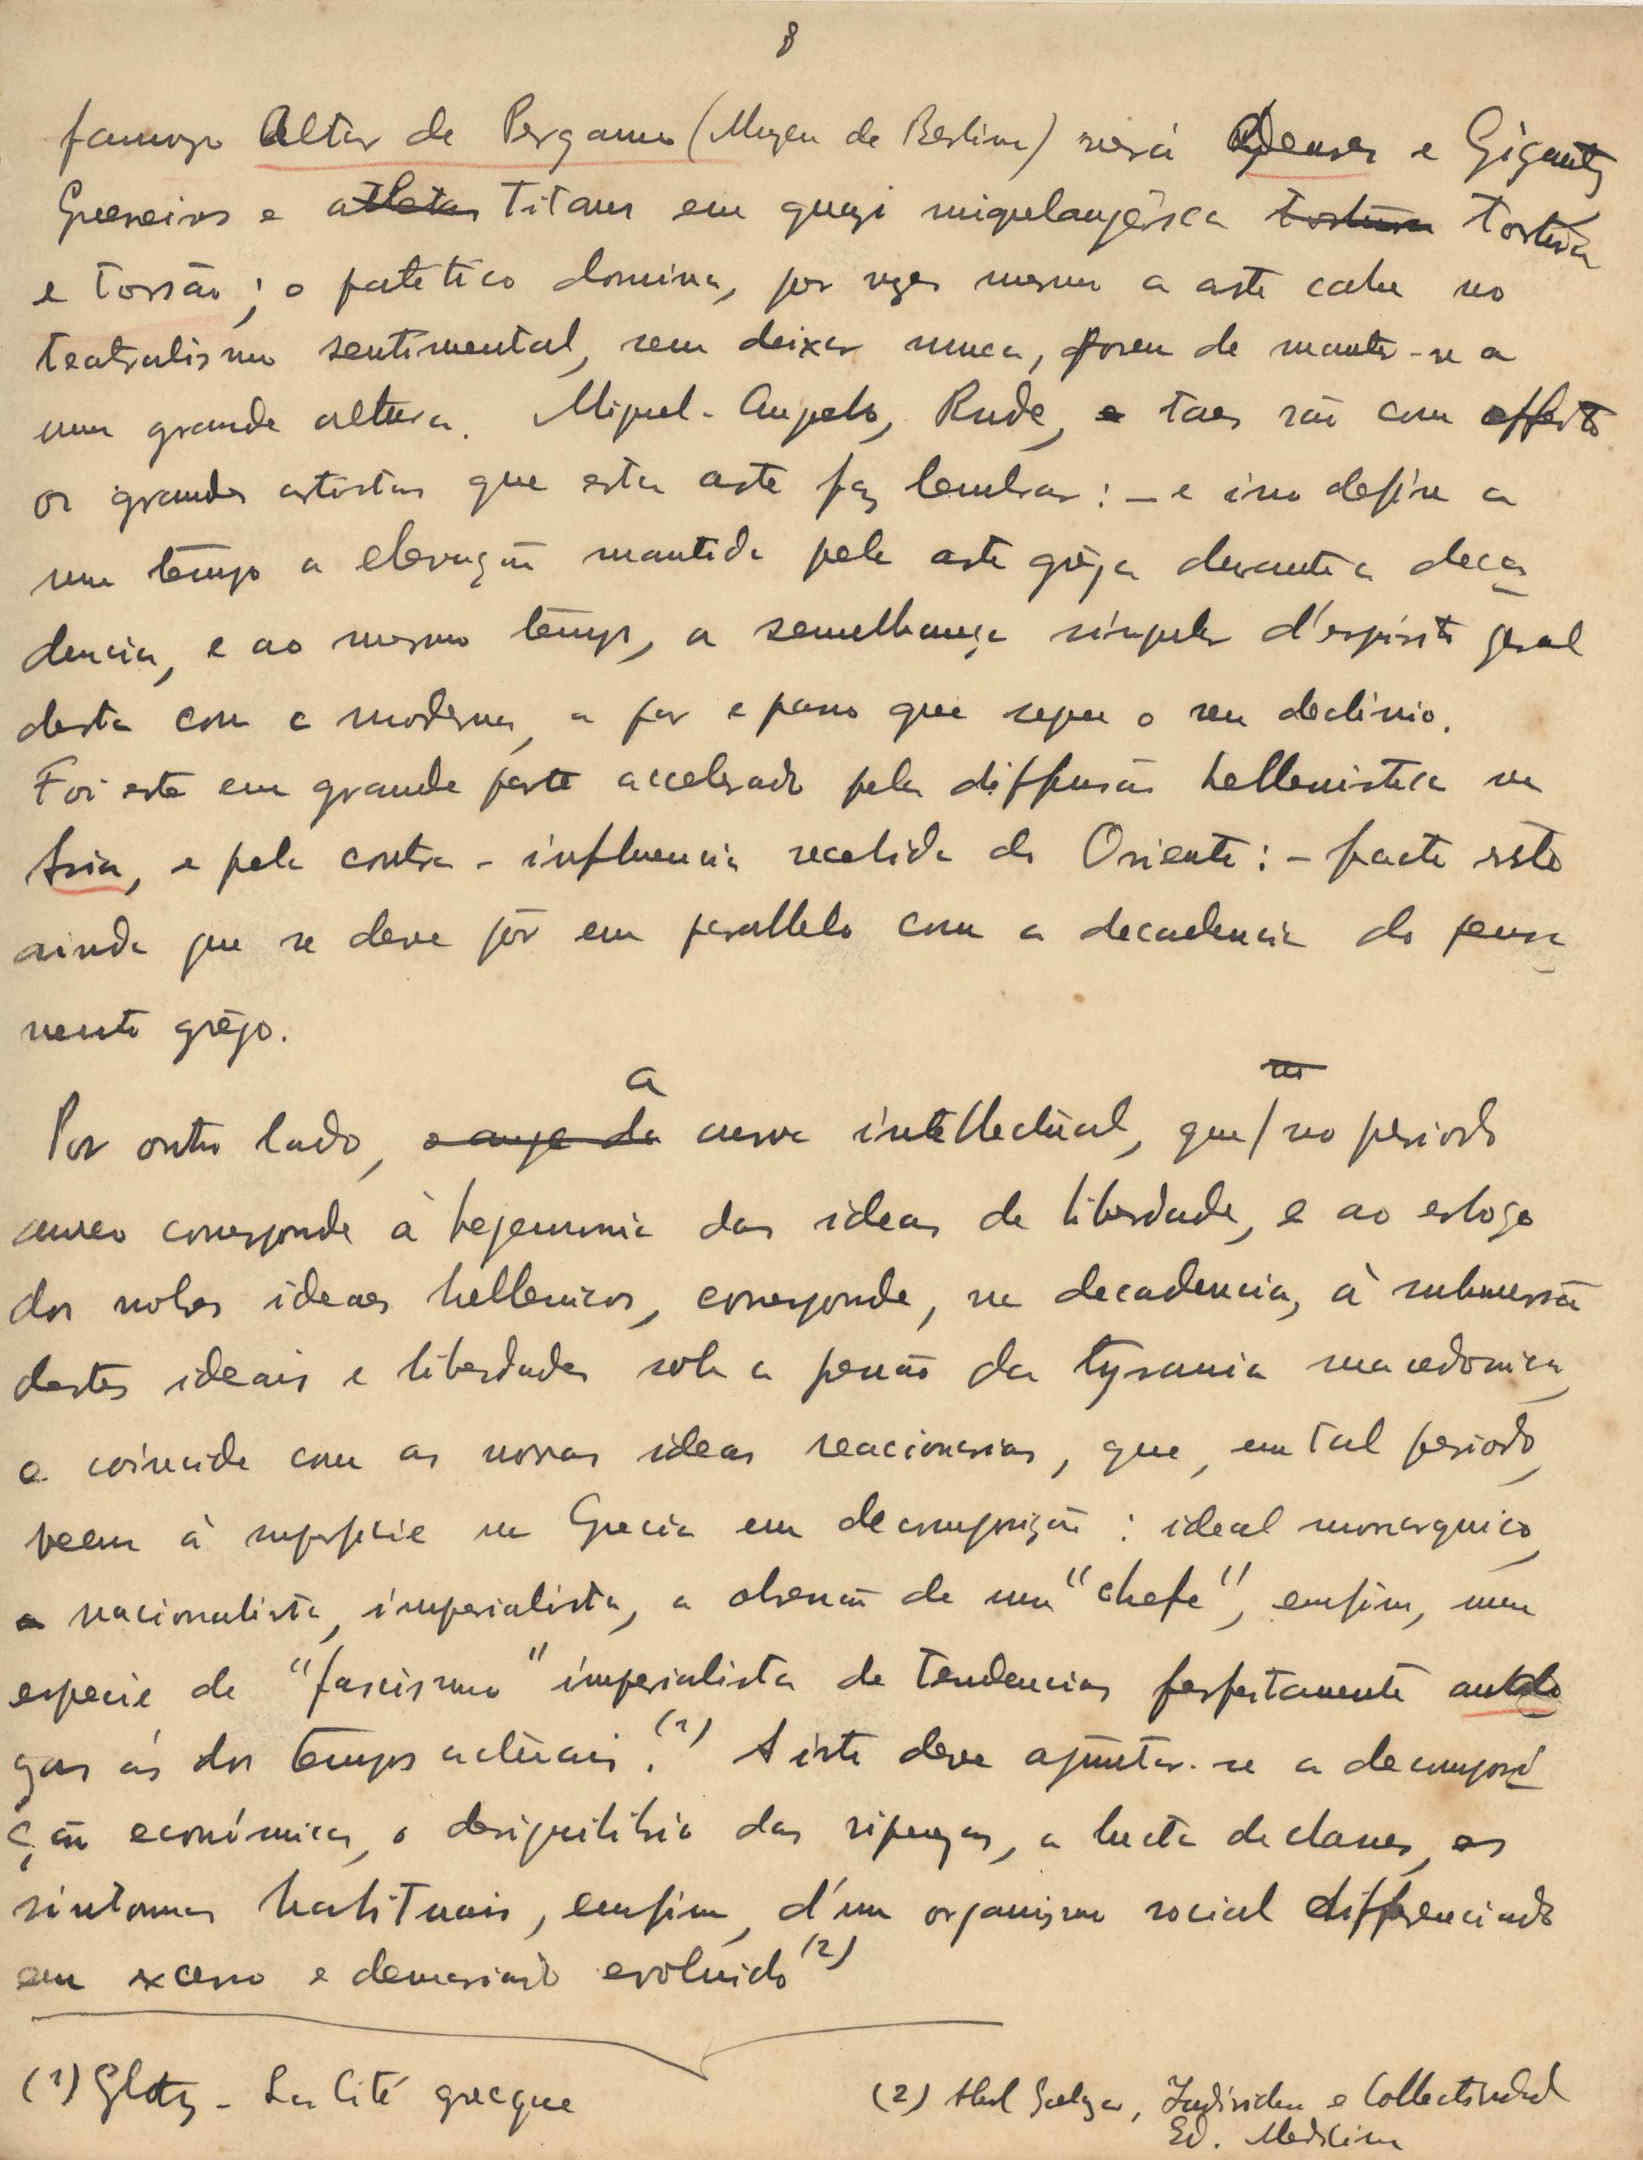 8
famoso Altar de Pergamo (Museu de Berlim) será Deuses e Gigantes
Guerreiros e atletas Titans em quazi miguelangêsca tortura Tortura
e Torsão; o patético domina, por vezes mesmo a arte cahe no
teatralismo sentimental, sem deixar nunca, porem de manter-se a
uma grande altura. Miguel-Angelo, Rude, e taes são com effeito
os grandes artistas que esta arte faz lembrar: – e isso define a
um tempo a elevação mantida pela arte grêga durante a deca
dencia, e ao mesmo tempo, a semelhança singular d'espirito geral
desta com a moderna, a par e passo que segue o seu declinio.
Foi este em grande parte accelerado pela diffusão hellenistica na
Asia, e pela contra-influencia recebida do Oriente: – facto este
ainda que se deve pôr em parallelo com a decadencia do pensa
mento grêgo.
a no
Por outro lado, o auge da curva intellectual, que/no periodo
aureo corresponde à hegemonia das ideas de liberdade, e ao
dos nobres ideaes hellenicos, corresponde, na decadencia, à submersão
destes ideais e liberdades sob a pressão da tyrania macedonica,
e coincide com as novas ideas reacionarias, que, em tal periodo,
veem à superficie na Grecia em decomposição: ideal monarquico,
e nacionalista, imperialista, a obsessão de um "chefe", emfim, uma
especie de "fascismo" imperialista de tendencias perfeitamente analo
gas ás dos tempos actùais.(1) A isto deve ajuntar-se a decomposi
ção económica, o desiquilibrio das riquezas, a lucta de classes, os
sintomas habituais, emfim, d'um organismo social differenciado
em excesso e demasiado evoluido(2)
(1) Glotz – La Cité grecque
(2) Abel Salazar, Individuo e Collectividade
Ed. Medicina